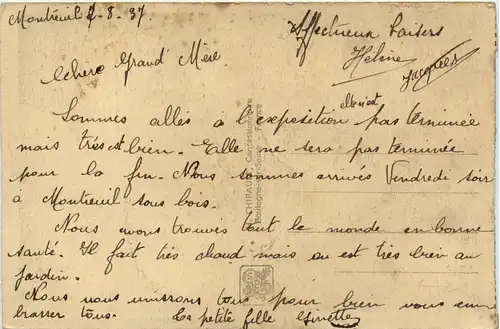 Montreuil 2-8-37
Affectueux baisers
Hélène
Jacques
Chère Grand' Mère.
Sommes allés à l'exposition elle n'est pas terminée
mais très est bien. Elle ne sera pas terminée
pour la fin. Nous sommes arrivés Vendredi soir
à Montreuil sous bois.
Nous avons trouvés tout le monde en bonne
santé. Il fait très chaud mais on est très bien au
jardin.
Nous nous unissons tous pour bien vous em
brasser tous. La petite fille Ginette
CHIPAULT, Concessionnaire
Boulogne-sur-Seine France